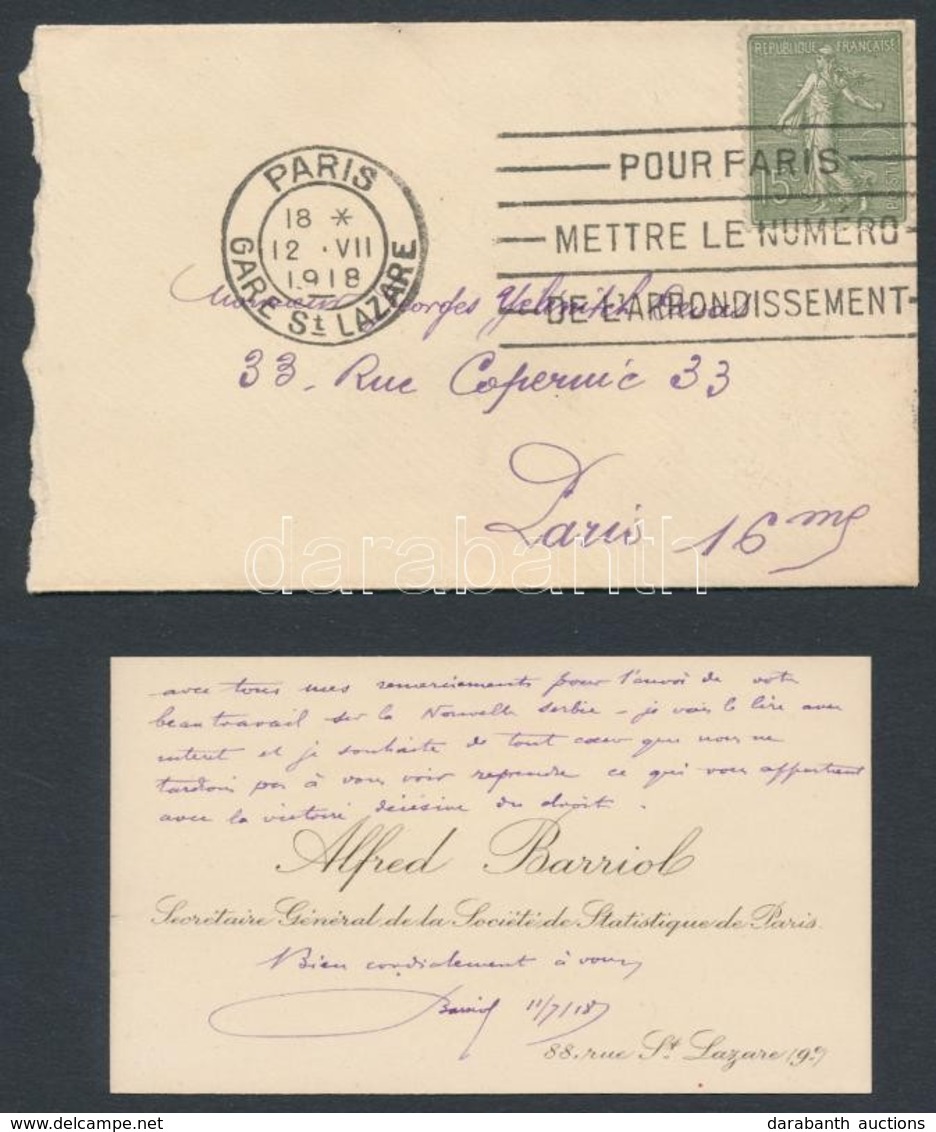 REPUBLIQUE FRANÇAISE
15c
POSTES
PARIS
18 *
12 · VII
1918
GARE St LAZARE
POUR PARIS
METTRE LE NUMERO
DE L'ARRONDISSEMENT
Monsieur Georges
33. Rue Copernic 33
Paris 16me
darabanth
avec tous mes remerciements pour l'envoi de votre
beau travail sur la Nouvelle Serbie - je vais le lire avec
intérêt et je souhaite de tout cœur que nous ne
tardions pas à vous voir reprendre ce qui vous appartient
avec la victoire décisive du droit.
Alfred Barriol
Secrétaire Général de la Société de Statistique de Paris.
Bien cordialement à vous
Barriol 11/7/18
88, rue St Lazare (9e)
darabanth auctions